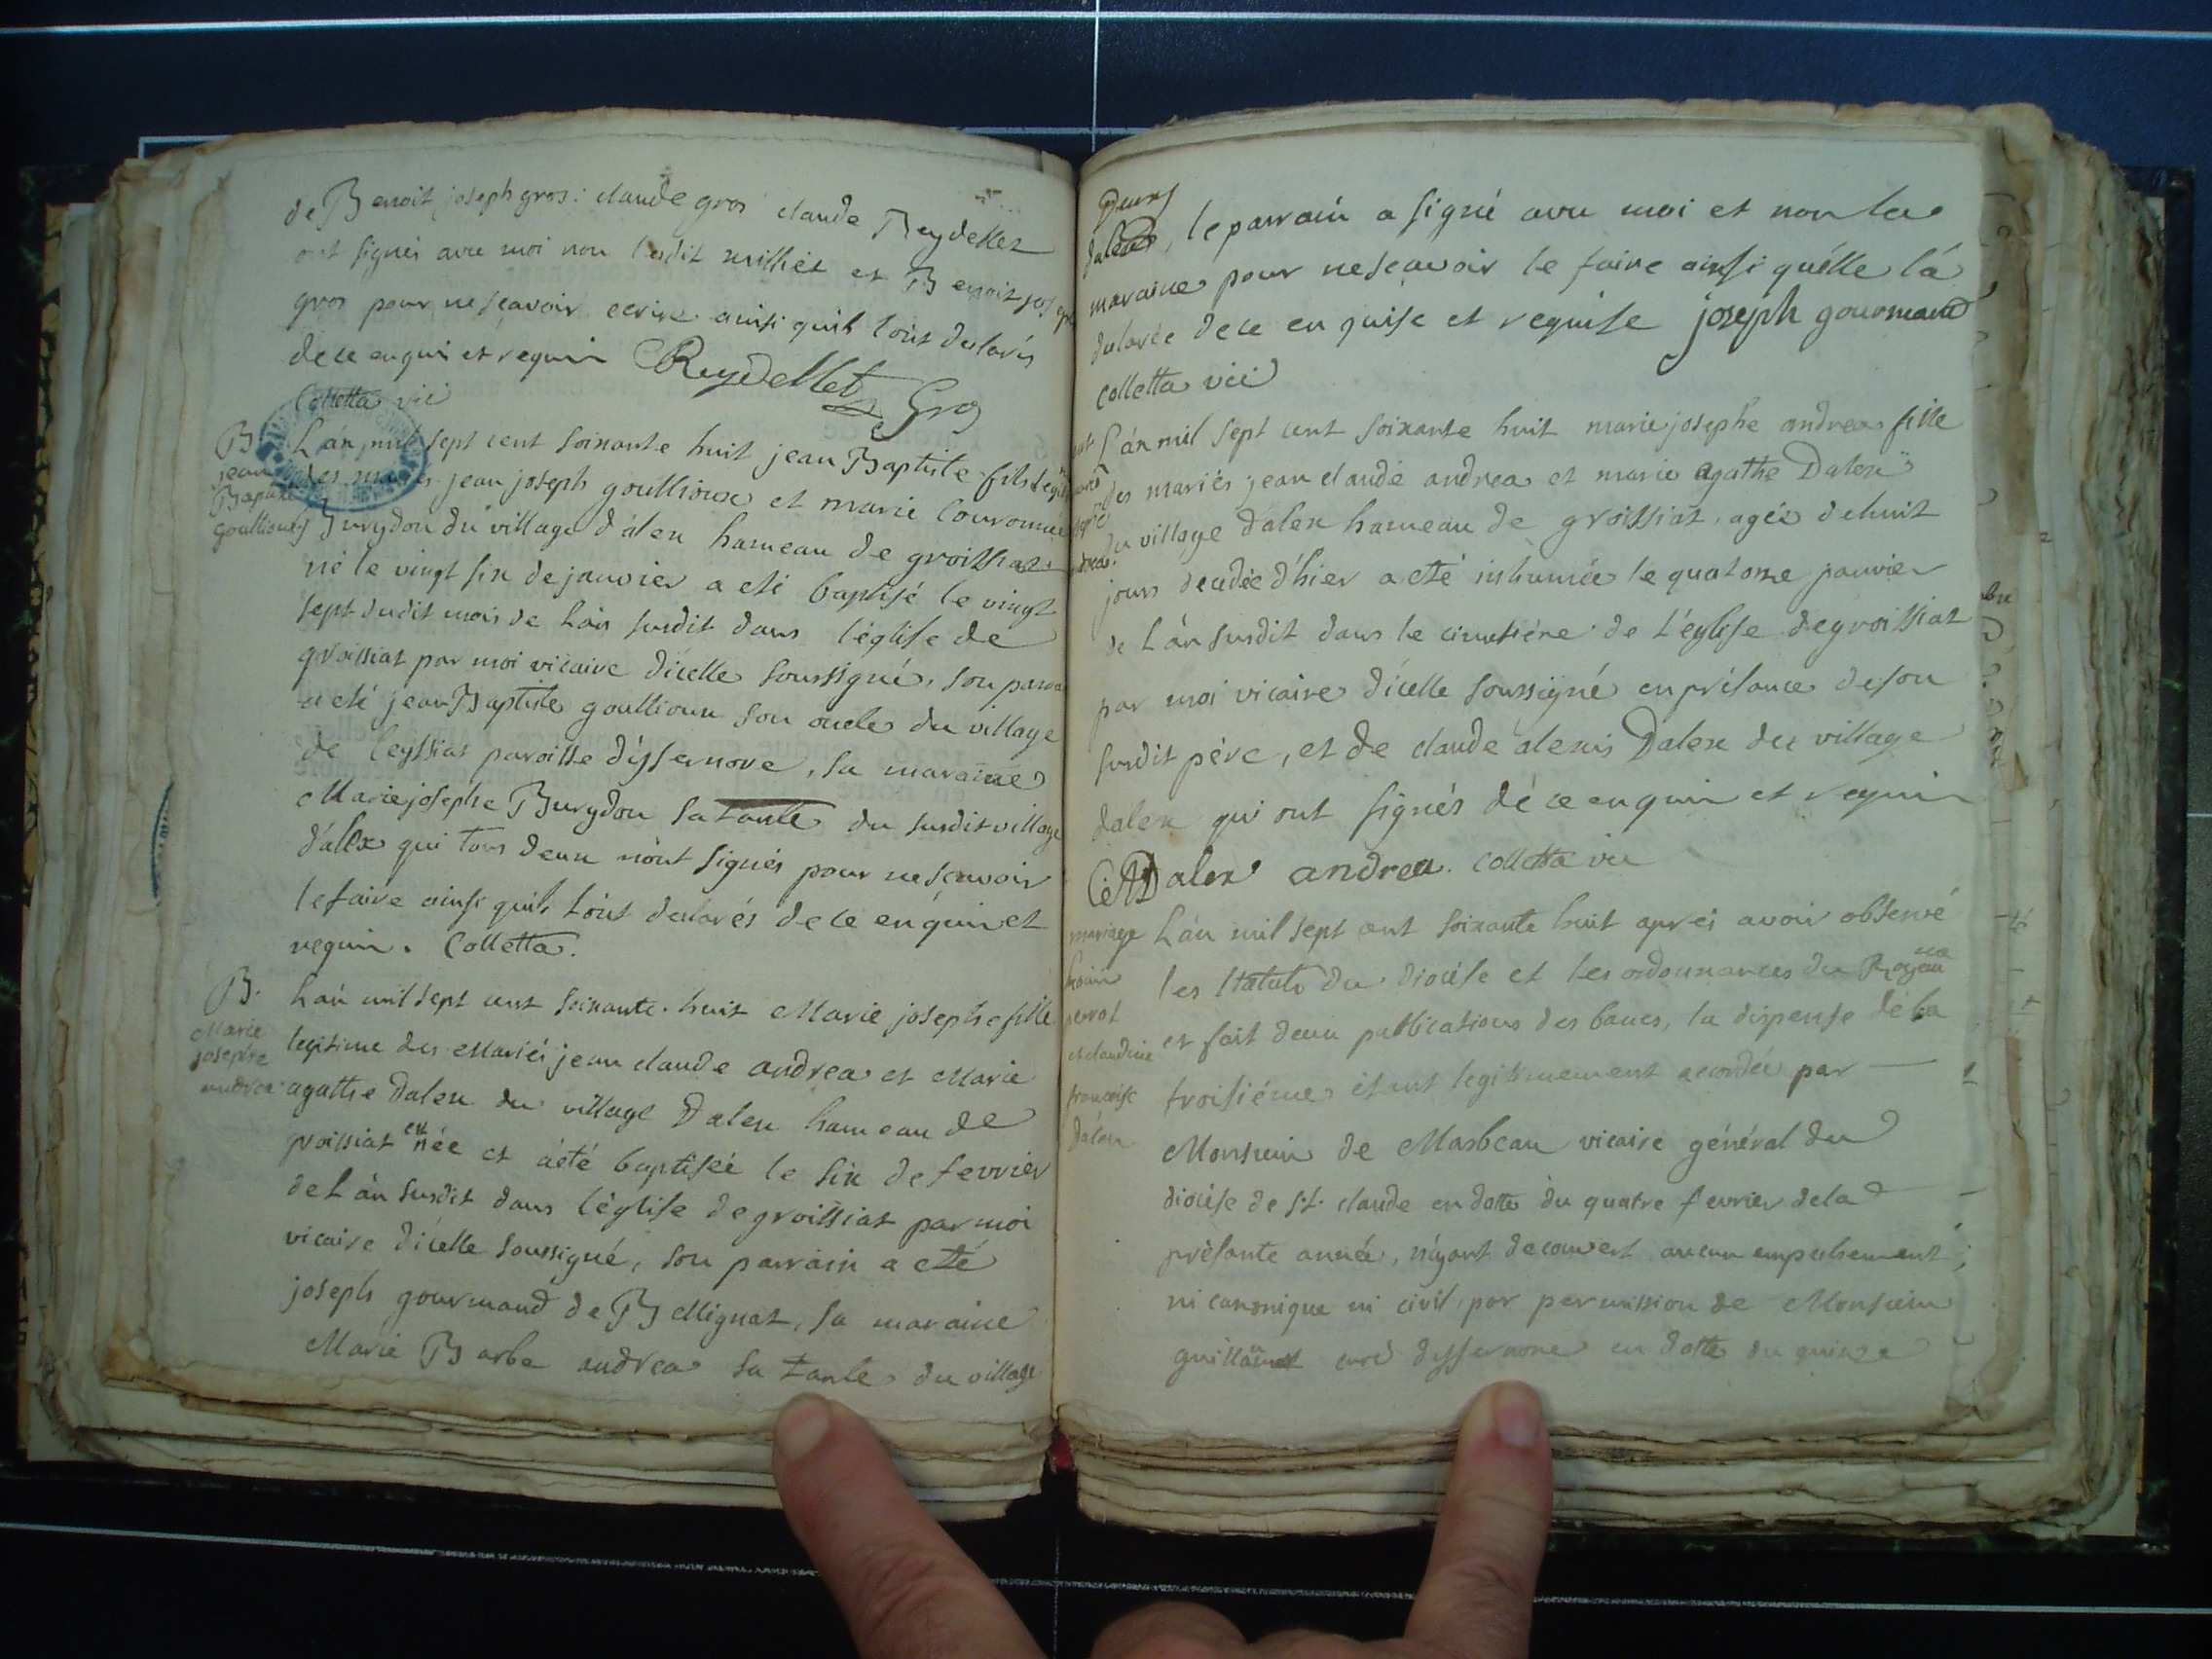 de Benoit joseph gros: claude gros claude Reydellet
ont signés avec moi non ledit milliet et Benoit joseph
gros pour ne sçavoir ecrire ainsi quils l'ont declarés
de ce enquis et requis Reydellet Gros
Colletta vic
B
jean
Baptiste
goullioux
L'án mil sept cent soixante huit jean Baptiste fils
des mariés jean joseph goullioux et marie Couronnée
Burydon du village d'alex hameau de groissiat
né le vingt six de janvier a eté baptisé le vingt
sept dudit mois de l'án susdit dans l'église de
groissiat par moi vicaire d'icelle soussigné, son parain
a eté jean Baptiste goullioux son oncle du village
de leyssiat paroisse d'yssernore, sa maraine
Marie josephe Burydon sa tante du susdit village
d'alex qui tous deux n'ont signés pour ne sçavoir
le faire ainsi quils l'ont declarés de ce enquis et
requis. Colletta.
B.
Marie
josephe
andrea
L'án mil sept cent soixante huit Marie josephe fille
legitime des Mariés jean claude andrea et Marie
agathe Dalex du village Dalex hameau de
groissiat est née et a été baptisée le six de fevrier
de l'án susdit dans l'église de groissiat par moi
vicaire d'icelle soussigné, son parrain a eté
joseph gourmand de Bellignat, sa maraine
Marie Barbe andrea sa tante du village
dalex, le parrain a signé avec moi et non la
maraine pour ne sçavoir le faire ainsi qu'élle l'á
declarée de ce enquise et requise joseph gourmand
Colletta vic
L'án mil sept cent soixante huit marie josephe andrea fille
des mariés jean claude andrea et marie agathe Dalex
du village dalex hameau de groissiat, agée de huit
jours decedée d'hier a eté inhumée le quatorze janvier
de L'án susdit dans le cimetiére de L'église de groissiat
par moi vicaire d'icelle soussigné en présance de son
susdit pére, et de claude alexis Dalex du village
dalex qui ont signés dé ce enquis et requis
CADalex andrea. Colletta vic
mariage
perrot
et claudine
francoise
dalex
L'án mil sept cent soixante huit aprés avoir observé
les statuts du diocése et les ordonnances du Royaume
et fait deux publications des bancs, la dispense de la
troisiéme étant legitimement accordée par
Monsieur de Masbeau vicaire général du
diocése de st. claude en datte du quatre fevrier de la
présante année, n'ayant decouvert aucun empechement
ni canonique ni civil, par permission de Monsieur
guillaumet curé d'yssernore en datte du quinze